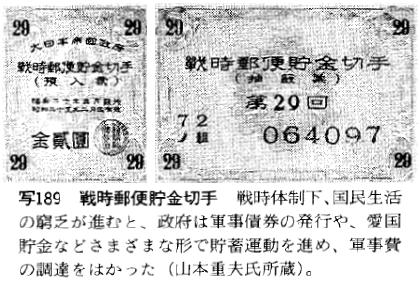 29 29
大日本帝国政府
戦時郵便貯金切手
(預入票)
金貳圓
29 29
29 29
戦時郵便貯金切手
(抽籤票)
第29回
72組 064097
29 29
写189 戦時郵便貯金切手 戦時体制下、国民生活
の窮乏が進むと、政府は軍事債券の発行や、愛国
貯金などさまざまな形で貯蓄運動を進め、軍事費
の調達をはかった(山本重夫氏所蔵)。